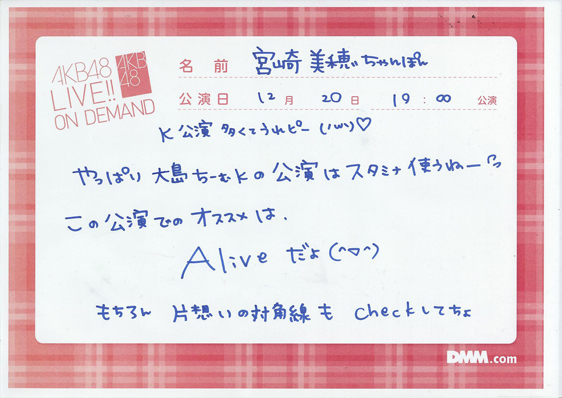 AKB48
LIVE!!
ON DEMAND
AKB
48
名前 宮崎美穂ぃちゃんぽん
公演日 12月 20日 19:00 公演
K公演 多くてうれピー (/ω\)♡
やっぱり 大島ちーむKの公演はスタミナ使うねーつ
この公演でのオススメは、
Aliveだよ(^▽^)
もちろん 片想いの対角線も checkしてちょ
DMM.com